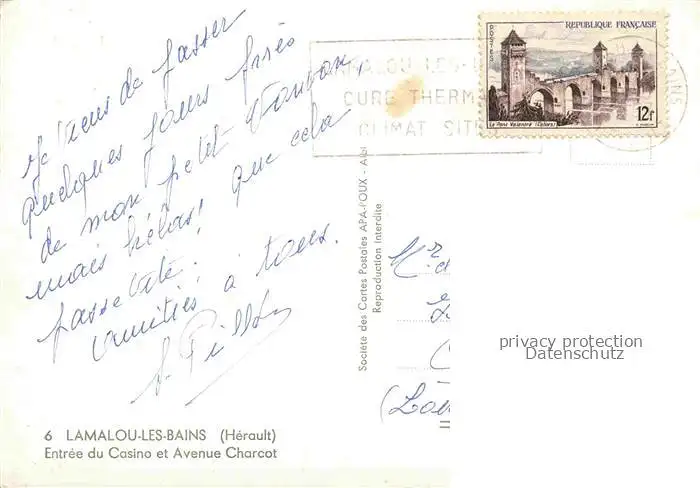 Je viens de passer
quelques jours près
de mon petit
mais hélas! que cela
passe vite.
Amitiés à tous.
6 LAMALOU-LES-BAINS (Hérault)
Entrée du Casino et Avenue Charcot
Société des Cartes Postales APA-POUX - Albi
Reproduction Interdite
LAMALOU-LES-B
CURE THERM
CLIMAT SIT
REPUBLIQUE FRANÇAISE
POSTES
12F
Le Pont Valentré (Cahors)
AINS
privacy protection
Datenschutz